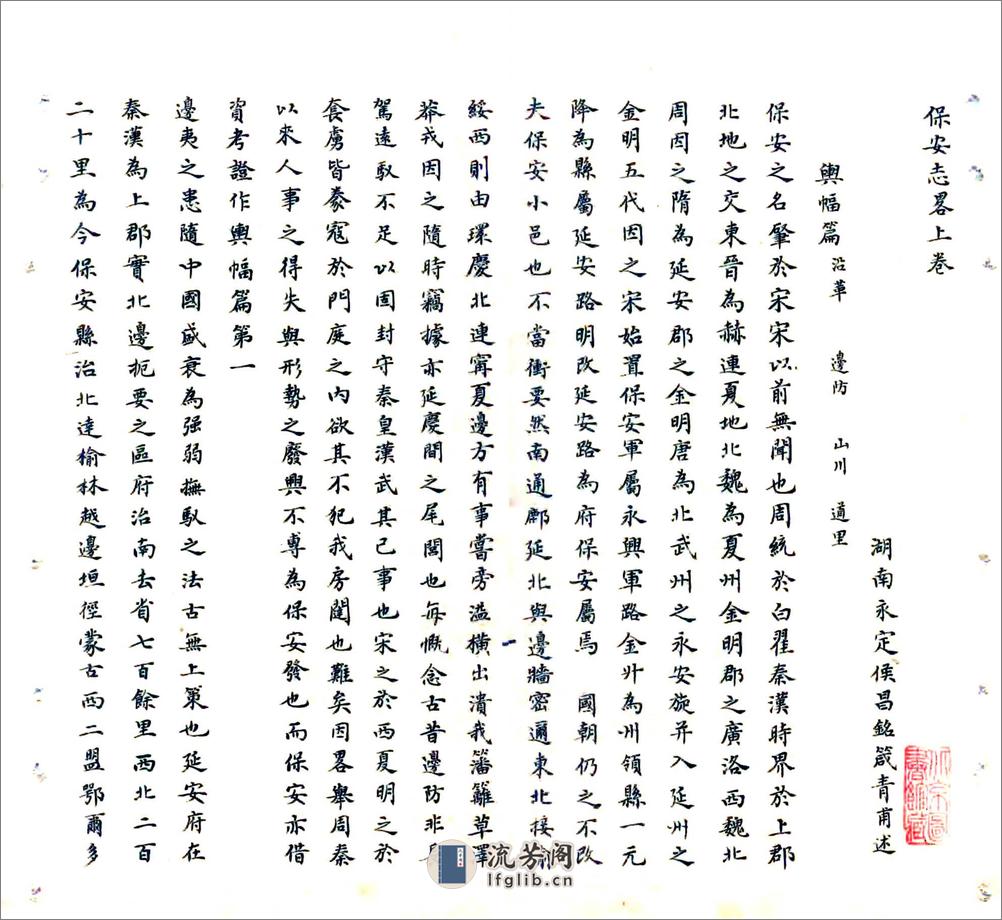 保安志畧上卷
湖南永定侯昌銘箴青甫述
輿幅篇 沿革 邊防 山川 道里
保安之名肇於宋宋以前無聞也周統於白翟秦漢時界於上郡
北地之交東晉為赫連夏地北魏為夏州金明郡之廣洛西魏北
周因之隋為延安郡之金明唐為北武州之永安旋并入延州之
金明五代因之宋始置保安軍屬永興軍路金升為州領縣一元
降為縣屬延安路明改延安路為府保安屬焉 國朝仍之不改
夫保安小邑也不當衝要然南通鄜延北與邊牆密邇東北接
綏西則由環慶北連甯夏邊方有事嘗旁溢橫出潰我籓籬草澤
莽戎因之隨時竊據亦延慶間之尾閭也每慨念古昔邊防非
駕遠馭不足以固封守秦皇漢武其已事也宋之於西夏明之於
套虜皆豢寇於門庭之內欲其不犯我房闥也難矣因畧舉周秦
以來人事之得失與形勢之廢興不專為保安發也而保安亦借
資考證作輿幅篇第一
邊夷之患隨中國盛衰為强弱撫馭之法古無上策也延安府在
秦漢為上郡實北邊扼要之區府治南去省七百餘里西北二百
二十里為今保安縣治北達榆林越邊垣徑蒙古西二盟鄂爾多
流芳阁
lfglib.cn